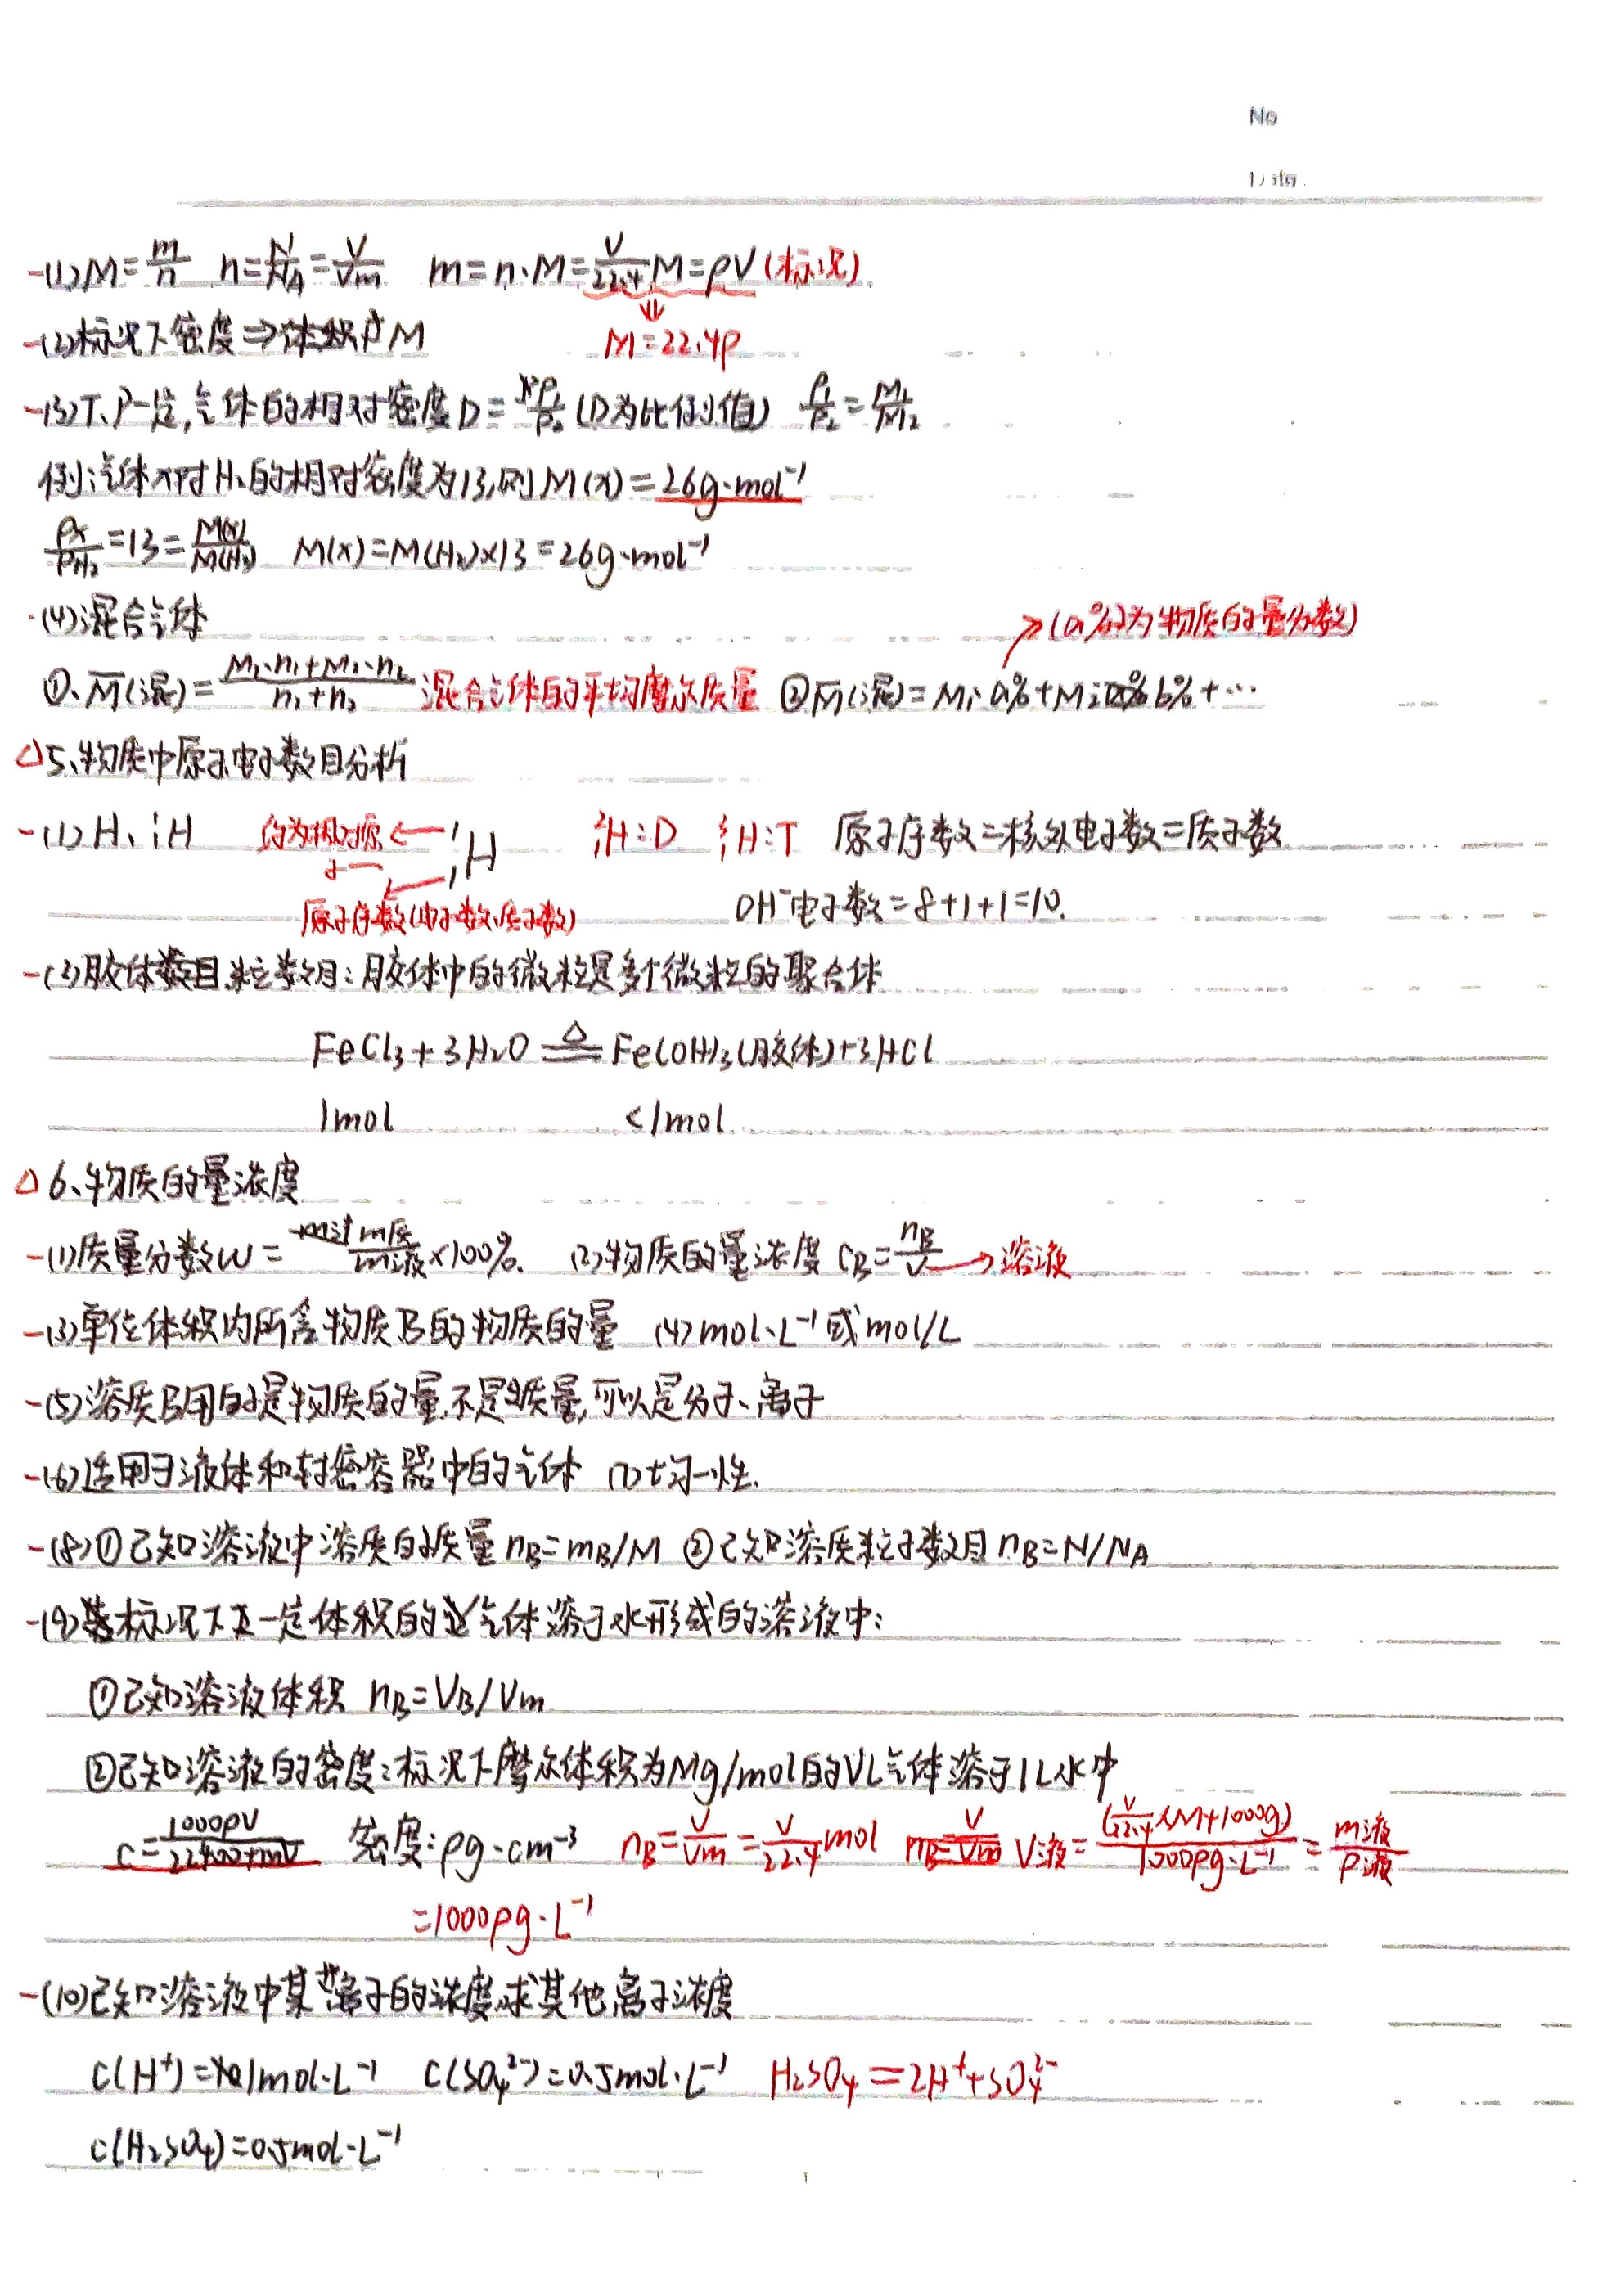 No
Date
(1)M=m/n n=N/NA=V/Vm m=n·M=V/22.4 M=ρV(标况)
(2)标况下密度⇒体积 M M=22.4ρ
(3)T、P一定,气体的相对密度D=ρ1/ρ2(D为比例值) ρ1/ρ2=M1/M2
例:气体x对H2的相对密度为13,则M(x)=26g·mol⁻¹
ρx/ρH2=13=M(x)/M(H2) M(x)=M(H2)×13=26g·mol⁻¹
(4)混合气体 →(a%为物质的量分数)
①、M̅(混)=(M1·n1+M2·n2)/(n1+n2) 混合气体的平均摩尔质量 ②M̅(混)=M1·a%+M2·b%+…
△5、物质中原子电子数目分析
(1)H、¹₁H 约为相对原子← ¹₁H ²₁H:D ³₁H:T 原子序数=核外电子数=质子数
原子序数(电子数、质子数) OH⁻电子数=8+1+1=10.
(2)胶体粒数目:胶体中的微粒是多个微粒的聚合体
FeCl3+3H2O =△= Fe(OH)3(胶体)+3HCl
1mol <1mol
△6、物质的量浓度
(1)质量分数W=m质/m液×100%. (2)物质的量浓度 CB=nB/V→溶液
(3)单位体积内所含物质B的物质的量 (4)mol·L⁻¹或mol/L
(5)溶质B用的是物质的量,不是质量,可以是分子、离子
(6)适用于液体和封密容器中的气体 (7)均一性.
(8)①已知溶液中溶质的质量nB=mB/M ②已知溶质粒子数目nB=N/NA
(9)标况下一定体积的气体溶于水形成的溶液中:
①已知溶液体积 nB=VB/Vm
②已知溶液的密度:标况下摩尔体积为Mg/mol的VL气体溶于1L水中
C=1000ρV/(22400+MV) 密度:ρg·cm⁻³ nB=V/Vm=V/22.4mol nB=V/Vm V液=(V/22.4×M+1000g)/1000ρg·L⁻¹=m液/ρ液
=1000ρg·L⁻¹
(10)已知溶液中某离子的浓度,求其他离子浓度
C(H⁺)=1mol·L⁻¹ C(SO4²⁻)=0.5mol·L⁻¹ H2SO4=2H⁺+SO4²⁻
C(H2SO4)=0.5mol·L⁻¹